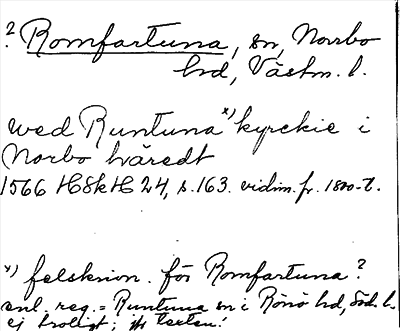 ? Romfartuna, sn, Norrbo
hd, Västm. l.
wed Runtuna *) kyrckie i
Norbo häredt
1566 HSkH 24, s. 163. vidim. fr. 1800-t.
*) felskrivn. för Romfartuna?
enl. reg. = Runtuna sn i Rönö hd, Söd. l.
ej troligt; jfr texten!